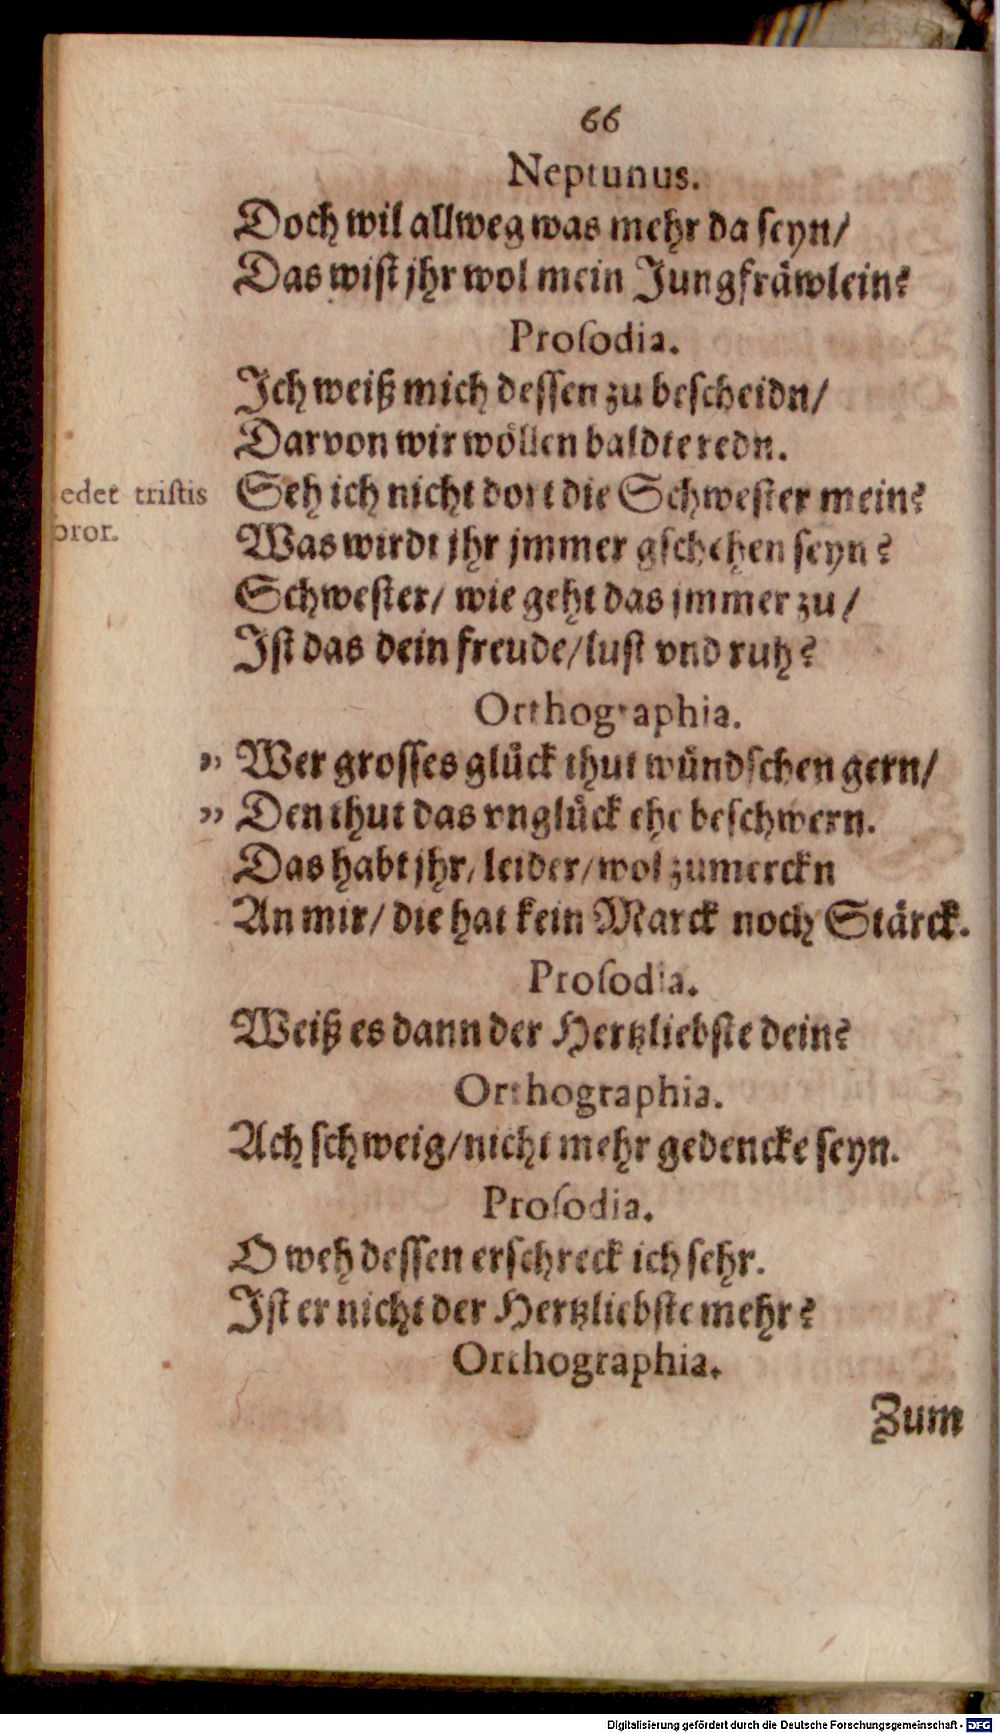 66
Neptunus.
Doch wil allweg was mehr da seyn/
Das wist jhr wol mein Jungfräwlein?
Proſodia.
Ich weiß mich deſſen zu beſcheidn/
Darvon wir wöllen baldte redn.
edet triſtis
oror.
Seh ich nicht dort die Schweſter mein?
Was wirdt jhr jmmer gſchehen ſeyn?
Schweſter/ wie geht das jmmer zu/
Iſt das dein freude/luſt vnd ruh?
Orthographia.
„ Wer groſſes glück thut wündſchen gern/
„ Den thut das vnglück ehe beſchwern.
Das habt jhr/ leider/wol zumerckn
An mir/ die hat kein Marck noch Stärck.
Proſodia.
Weiß es dann der Hertzliebſte dein?
Orthographia.
Ach ſchweig/nicht mehr gedencke ſeyn.
Proſodia.
O weh deſſen erſchreck ich ſehr.
Iſt er nicht der Hertzliebſte mehr?
Orthographia.
Zum
Digitalisierung gefördert durch die Deutsche Forschungsgemeinschaft - DFG